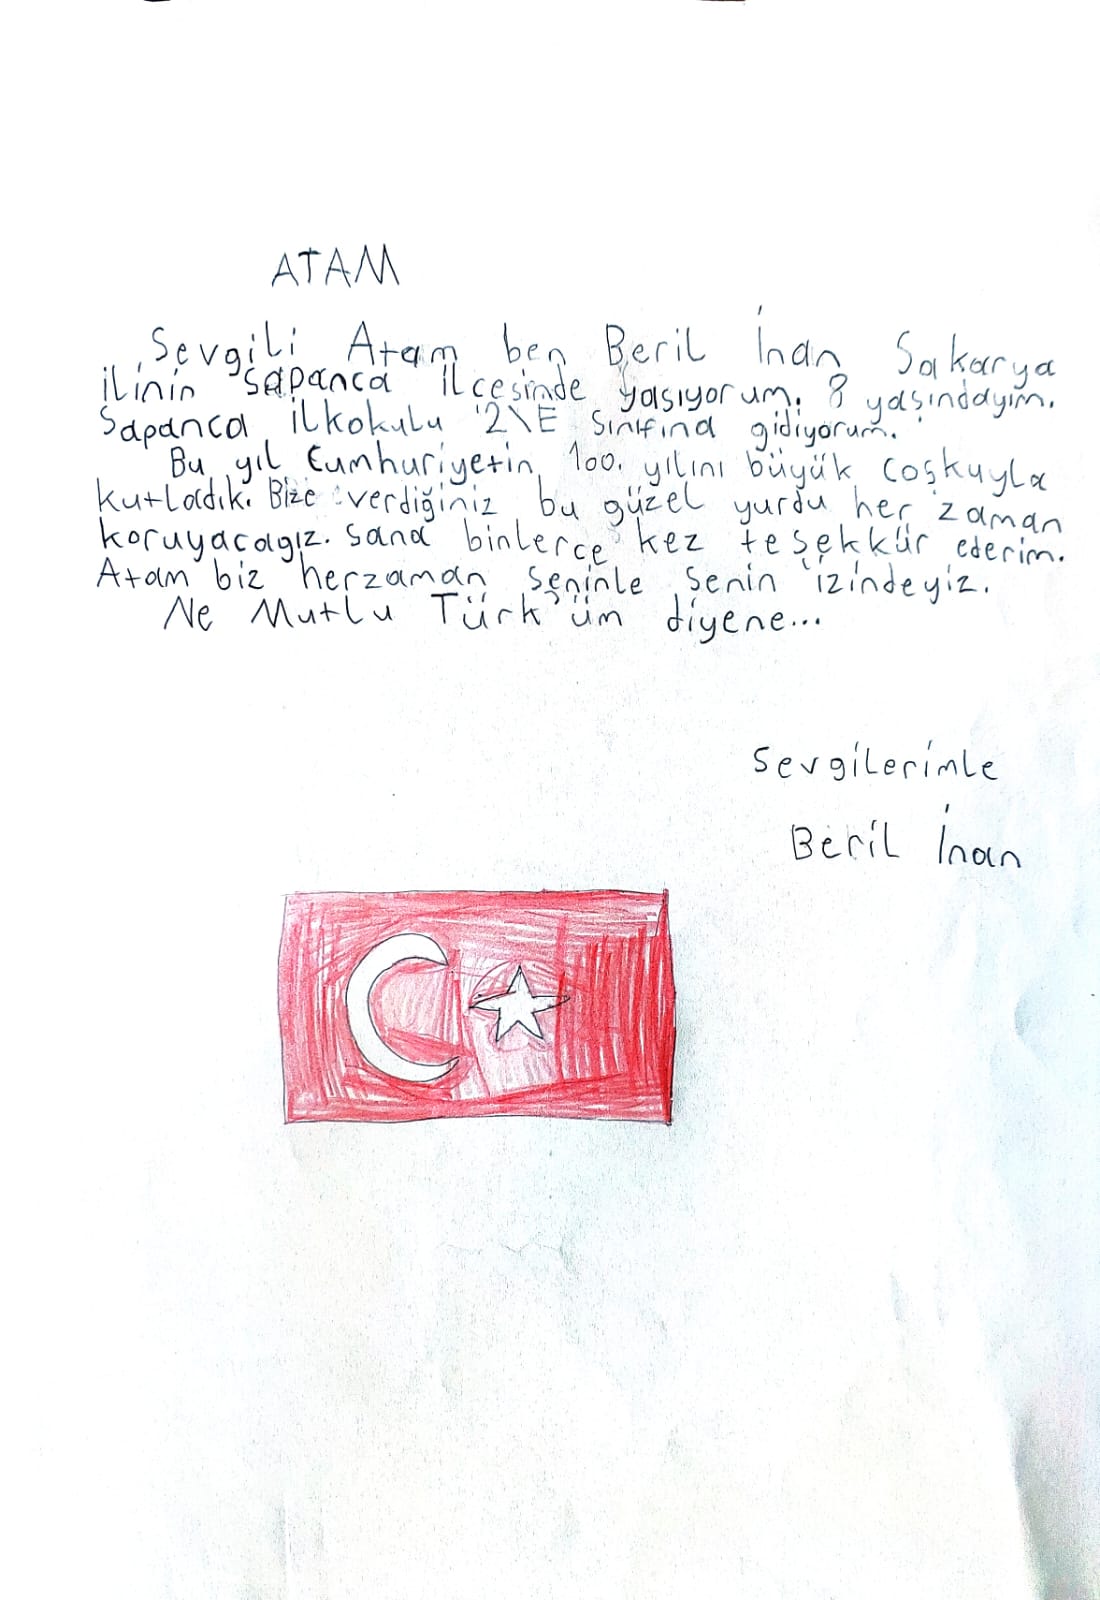 ATAM
Sevgili Atam ben Beril İnan Sakarya
ilinin Sapanca ilcesinde yaşıyorum. 8 yaşındayım.
Sapanca ilkokulu 2\E Sınıfına gidiyorum.
Bu yıl Cumhuriyetin 100. yılını büyük coşkuyla
kutladık. Bize verdiğiniz bu güzel yurdu her zaman
koruyacagız. Sana binlerce kez teşekkür ederim.
Atam biz herzaman seninle senin izindeyiz.
Ne Mutlu Türk'üm diyene...
Sevgilerimle
Beril İnan